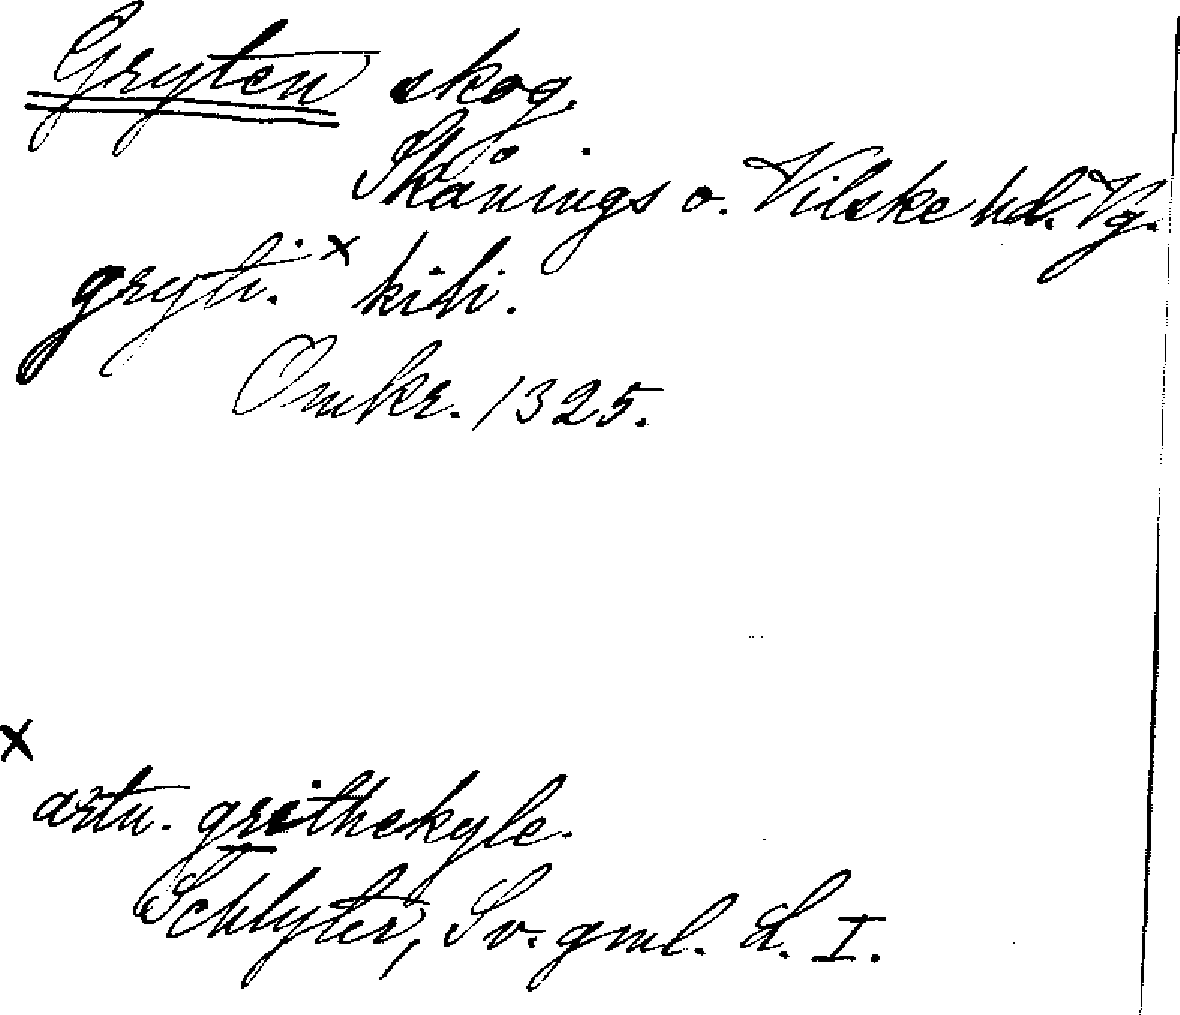 Gryten skog.
Skånings o. Vilske hd. Vg.
gryti. x kihi.
Omkr. 1325.
x
artu. grithekyle.
Schlyter, Sv. gml. L. I.